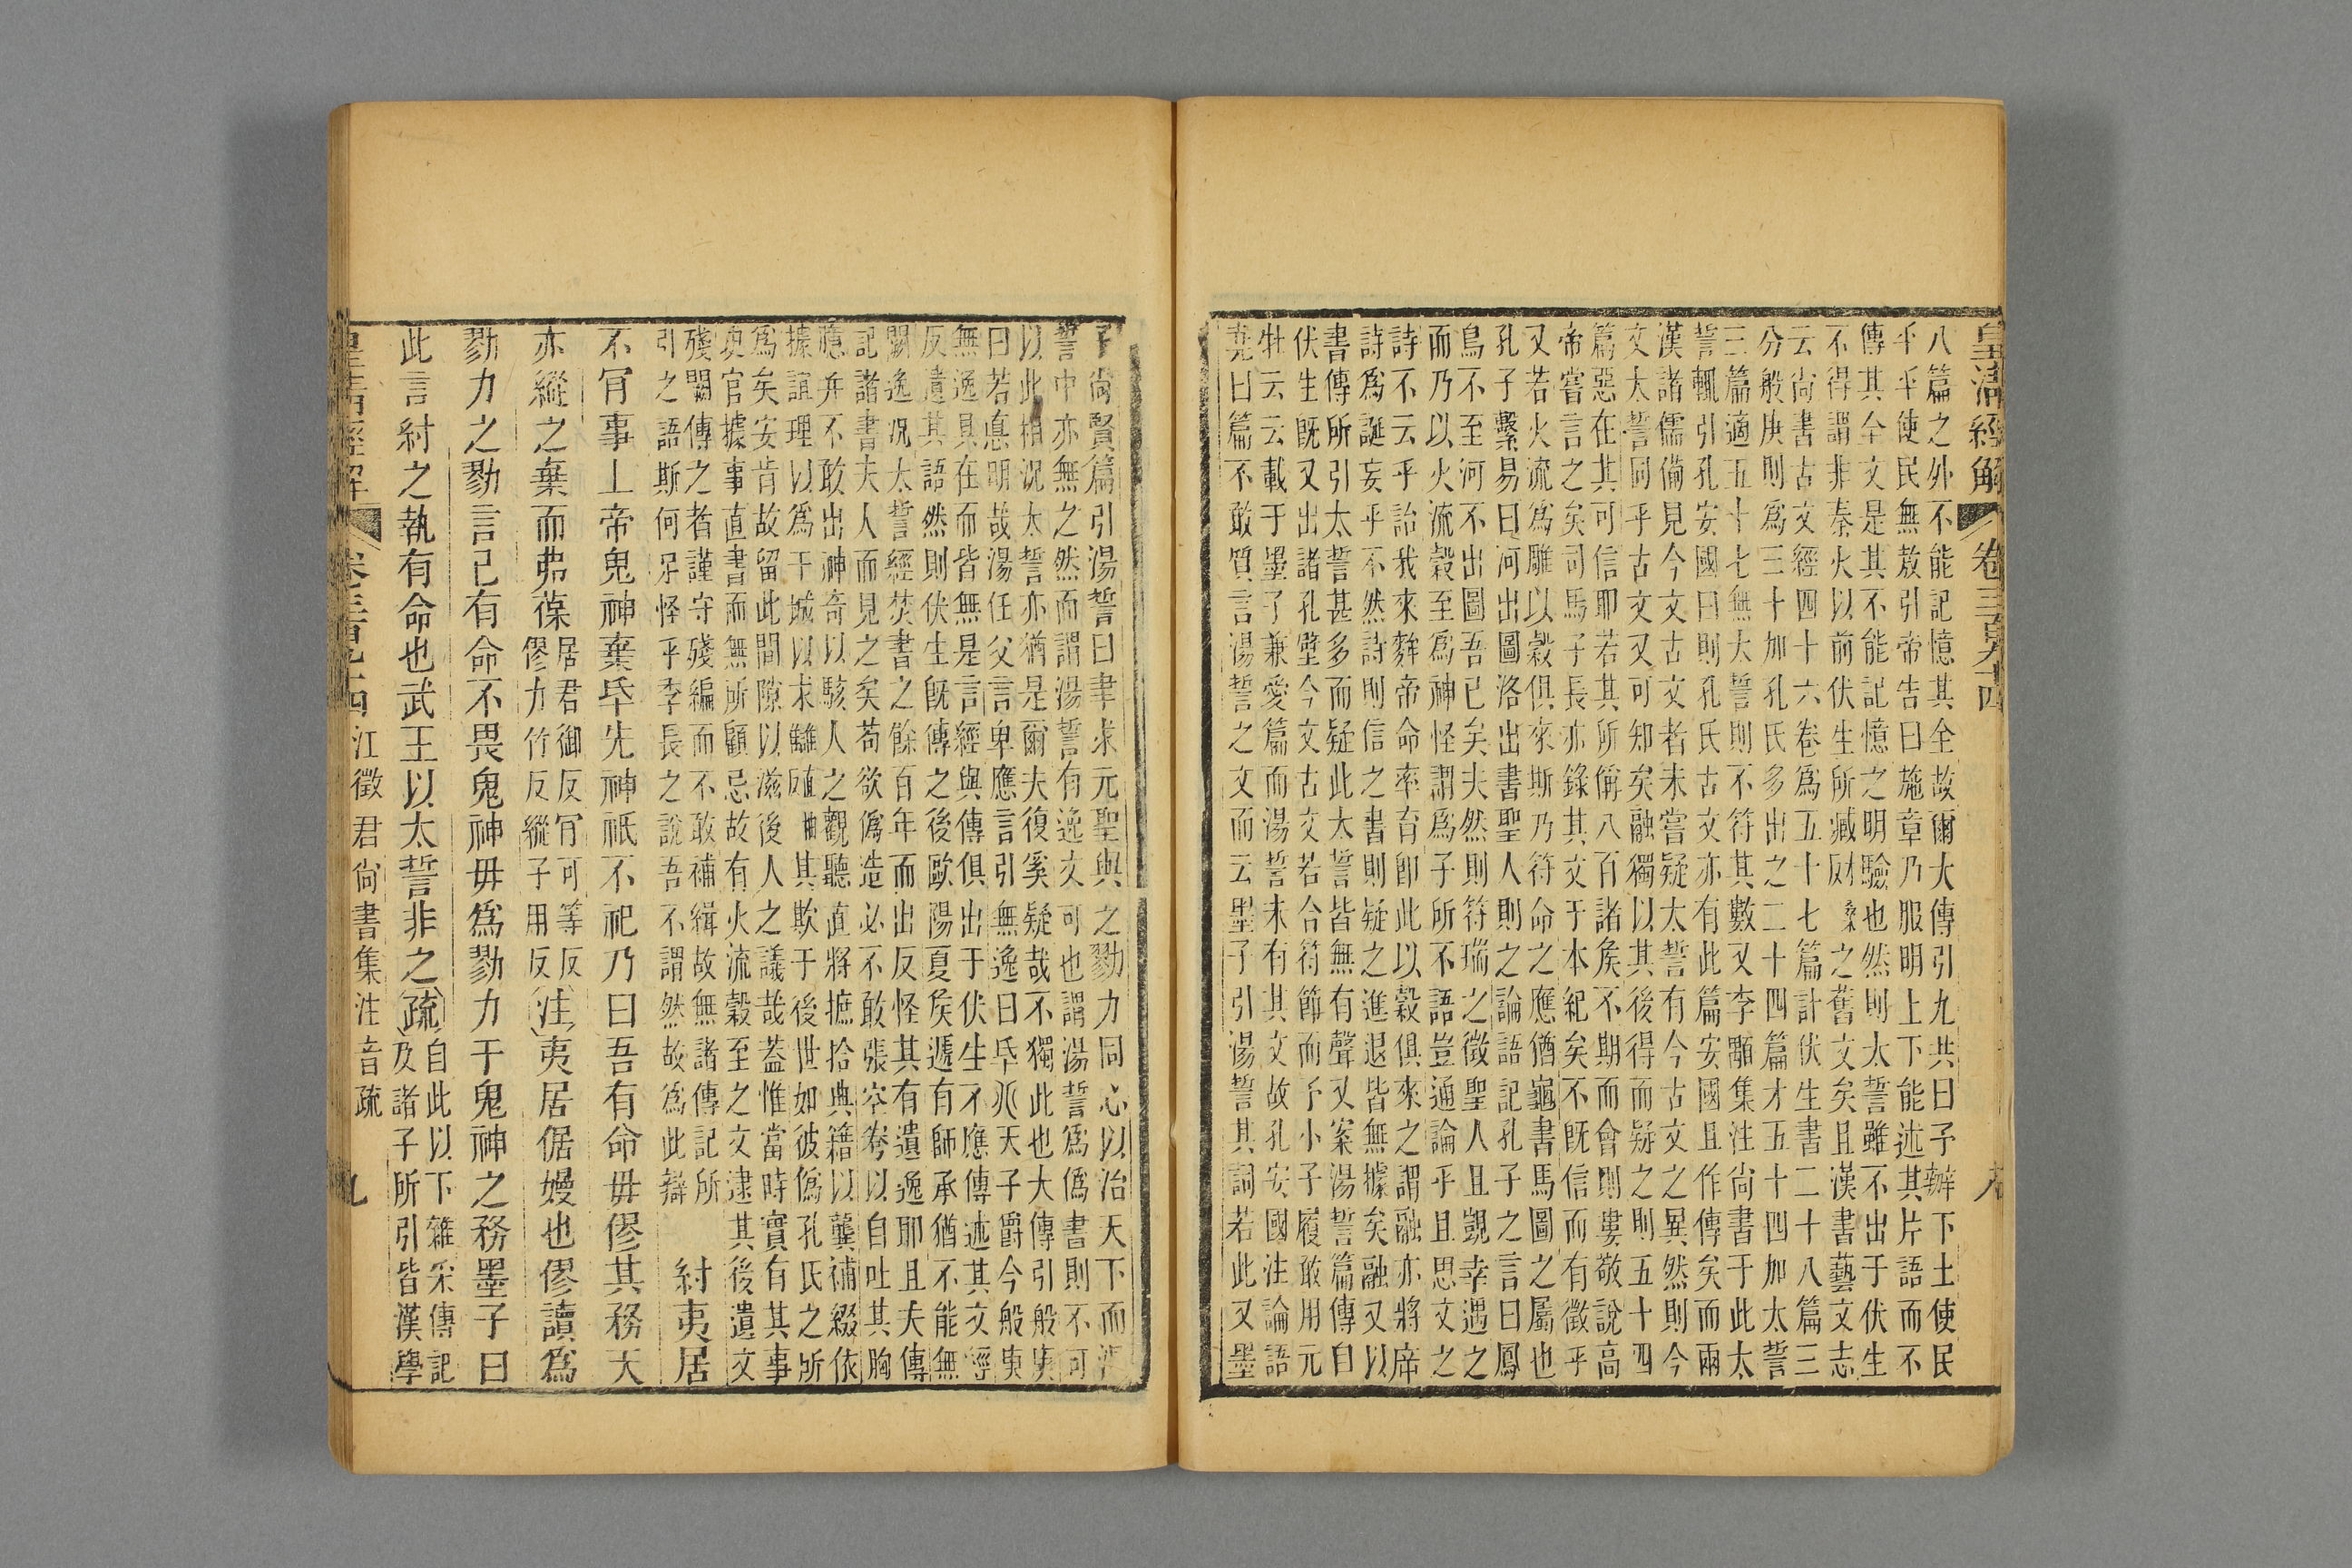 皇清經解
卷三百九十四
八篇之外不能記憶其全故爾大傳引九共曰予辯下土使民
平平使民無敖引帝告曰施章乃服明上下能述其片語而不
傳其全文是其不能記憶之明驗也然則太誓雖不出于伏生
不得謂非秦火以前伏生所臧之舊文矣且漢書藝文志
云尚書古文經四十六卷爲五十七篇計伏生書二十八篇三
分般庚則爲三十加孔氏多出之二十四篇才五十四加太誓
三篇適五十七無大誓則不符其數又李顒集注尚書于此太
誓輒引孔安國曰則孔氏古文亦有此篇安國且作傳矣而兩
漢諸儒備見今文古文者未嘗疑太誓有今古文之異然則今
文太誓同乎古文又可知矣融獨以其後得而疑之則五十四
篇惡在其可信耶若其所偁八百諸矦不期而會則婁敬說高
帝嘗言之矣司馬子長亦錄其文于本紀矣不旣信而有徵乎
又若火流爲雕以穀俱來斯乃符命之應猶龜書馬圖之屬也
孔子繫易曰河出圖洛出書聖人則之論語記孔子之言曰鳳
鳥不至河不出圖吾已矣夫然則符瑞之徵聖人且覬幸遇之
而乃以火流穀至爲神怪謂爲子所不語豈通論乎且思文之
詩不云乎詒我來麰帝命率育卽此以穀俱來之謂融亦將庠
詩爲誕妄乎不然詩則信之書則疑之進退皆無據矣融又以
書傳所引太誓甚多而疑此太誓皆無有聲又案湯誓篇傳自
伏生旣又出諸孔壁今文古文若合符節而予小子履敢用元
牡云云載于墨子兼愛篇而湯誓未有其文故孔安國注論語
堯曰篇不敢質言湯誓之文而云墨子引湯誓其詞若此又墨
子尚賢篇引湯誓曰聿求元聖與之勠力同心以治天下而湯
誓中亦無之然而謂湯誓有逸文可也謂湯誓爲僞書則不可
以此相況太誓亦猶是爾夫復奚疑哉不獨此也大傳引般庚
曰若悳明哉湯任父言卑應言引無逸曰厥兆天子爵今般庚
無逸具在而皆無是言經與傳俱出于伏生不應傳述其文經
反遺其語然則伏生旣傳之後歐陽夏矦遞有師承猶不能無
闕逸況太誓經焚書之餘百年而出反怪其有遺逸耶且夫傳
記諸書夫人而見之矣苟欲僞造必不敢張空弮以自吐其胸
臆幷不敢出神奇以駭人之觀聽直將摭拾典籍以龔補綴依
據誼理以爲干城以求其欺于後世如彼僞孔氏之所
爲矣安肯故留此閒隙以滋後人之議哉蓋惟當時實有其事
史官據事直書而無所顧忌故有火流穀至之文逮其後遺文
殘闕傳之者謹守殘編而不敢補緝故無諸傳記所
引之語斯何足怪乎李長之說吾不謂然故爲此辯
紂夷居
不肎事上帝鬼神棄厥先神祇不祀乃曰吾有命毋僇其務天
亦縱之棄而弗葆居君御反肎可等反
僇力竹反縱子用反注夷居倨嫚也僇讀爲
勠力之勠言己有命不畏鬼神毋爲勠力于鬼神之務墨子曰
此言紂之執有命也武王以太誓非之疏自此以下雜采傳記
及諸子所引皆漢學
皇清經解
卷三百九十四
江徵君尙書集注音疏
九